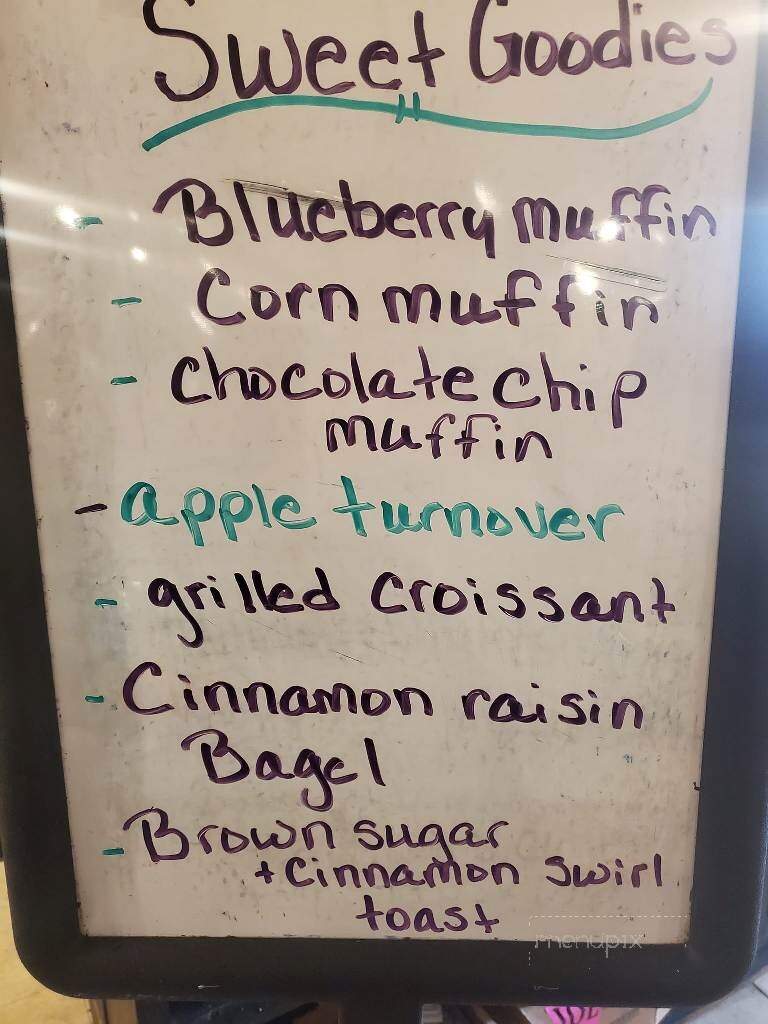 Sweet Goodies
- Blueberry muffin
- Corn muffin
- Chocolate chip
muffin
- apple turnover
- grilled croissant
- Cinnamon raisin
Bagel
- Brown sugar
+ Cinnamon swirl
toast
menupix